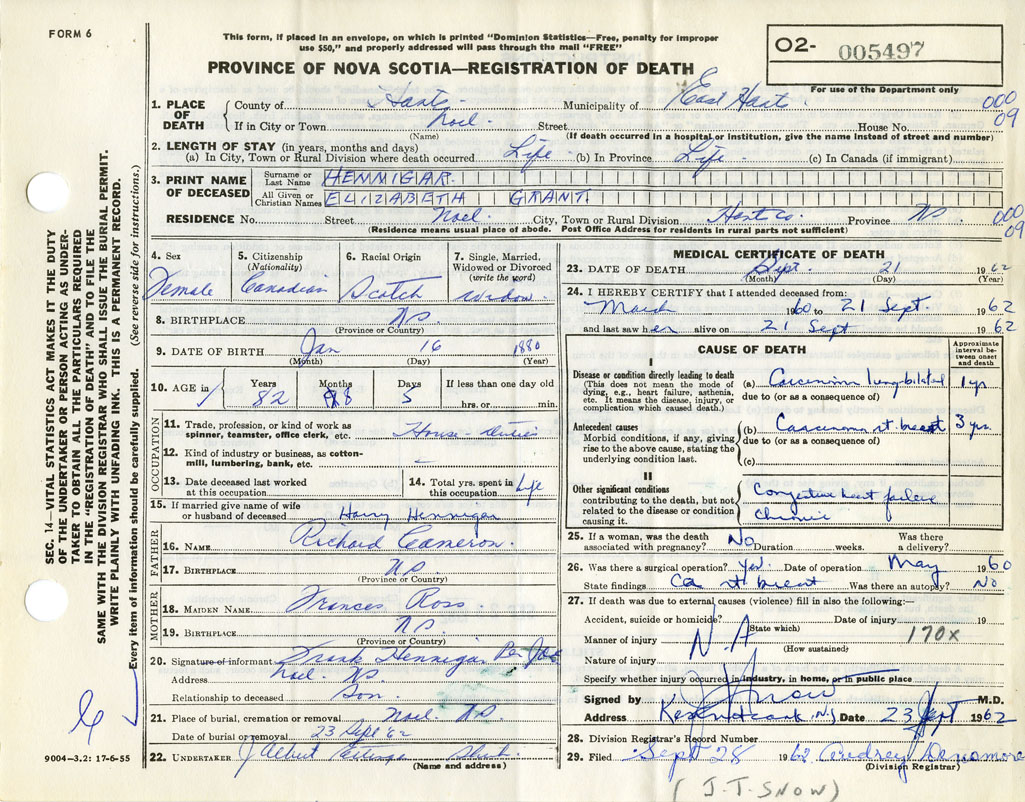 FORM 6
This form, if placed in an envelope, on which is printed "Dominion Statistics—Free, penalty for improper
use $50," and properly addressed will pass through the mail "FREE"
02- 005497
PROVINCE OF NOVA SCOTIA—REGISTRATION OF DEATH
For use of the Department only
1. PLACE OF DEATH
County of Hants Municipality of East Hants 000
If in City or Town Noel Street House No. 09
(Name) (If death occurred in a hospital or institution, give the name instead of street and number)
2. LENGTH OF STAY (in years, months and days)
(a) In City, Town or Rural Division where death occurred Life (b) In Province Life (c) In Canada (if immigrant)
3. PRINT NAME OF DECEASED
Surname or Last Name HENNIGAR
All Given or Christian Names ELIZABETH GRANT
RESIDENCE No. Street Noel City, Town or Rural Division Hants Co. Province NS 000
(Residence means usual place of abode. Post Office Address for residents in rural parts not sufficient) 09
4. Sex
Female
5. Citizenship
(Nationality)
Canadian
6. Racial Origin
Scotch
7. Single, Married,
Widowed or Divorced
(write the word)
widow
8. BIRTHPLACE NS
(Province or Country)
9. DATE OF BIRTH Jan 16 1880
(Month) (Day) (Year)
10. AGE in
Years Months Days If less than one day old
82 8 5 hrs. or min.
OCCUPATION
11. Trade, profession, or kind of work as
spinner, teamster, office clerk, etc. House-duties
12. Kind of industry or business, as cotton-
mill, lumbering, bank, etc. –
13. Date deceased last worked
at this occupation
14. Total yrs. spent in
this occupation Life
15. If married give name of wife
or husband of deceased Harry Hennigar
FATHER
16. NAME Richard Cameron
17. BIRTHPLACE NS
(Province or Country)
MOTHER
18. MAIDEN NAME Frances Ross
19. BIRTHPLACE NS
(Province or Country)
20. Signature of informant Frank Hennigar Per
Address Noel NS
Relationship to deceased Son
21. Place of burial, cremation or removal Noel NS
Date of burial or removal 23 Sept '62
22. UNDERTAKER J Albert
(Name and address)
MEDICAL CERTIFICATE OF DEATH
23. DATE OF DEATH Sept. 21 1962
(Month) (Day) (Year)
24. I HEREBY CERTIFY that I attended deceased from:
March 1960 to 21 Sept. 1962
and last saw her alive on 21 Sept 1962
CAUSE OF DEATH
Approximate
interval be-
tween onset
and death
I
Disease or condition directly leading to death
(This does not mean the mode of
dying, e.g., heart failure, asthenia,
etc. It means the disease, injury, or
complication which caused death.)
(a) Carcinoma lung bilateral 1 yr
due to (or as a consequence of)
Antecedent causes
Morbid conditions, if any, giving
rise to the above cause, stating the
underlying condition last.
(b) Carcinoma rt breast 3 yrs
due to (or as a consequence of)
(c)
II
Other significant conditions
contributing to the death, but not
related to the disease or condition
causing it.
Congestive heart failure
chronic
25. If a woman, was the death
associated with pregnancy? No Duration weeks. Was there
a delivery?
26. Was there a surgical operation? Yes. Date of operation May 1960
State findings Ca rt breast Was there an autopsy? No
27. If death was due to external causes (violence) fill in also the following:—
Accident, suicide or homicide? Date of injury 19
(State which)
Manner of injury N.A 170X
(How sustained)
Nature of injury
Specify whether injury occurred in industry, in home, or in public place
Signed by J T Snow M.D.
Address Kennetcook, N.S Date 23 Sept 1962
28. Division Registrar's Record Number
29. Filed Sept 28 1962 Audrey Densmore
(Division Registrar)
(J.T. SNOW)
SEC. 14—VITAL STATISTICS ACT MAKES IT THE DUTY
OF THE UNDERTAKER OR PERSON ACTING AS UNDER-
TAKER TO OBTAIN ALL THE PARTICULARS REQUIRED
IN THE "REGISTRATION OF DEATH" AND TO FILE THE
SAME WITH THE DIVISION REGISTRAR WHO SHALL ISSUE THE BURIAL PERMIT.
WRITE PLAINLY WITH UNFADING INK. THIS IS A PERMANENT RECORD.
Every item of information should be carefully supplied. (See reverse side for instructions.)
9004—3.2: 17-6-55